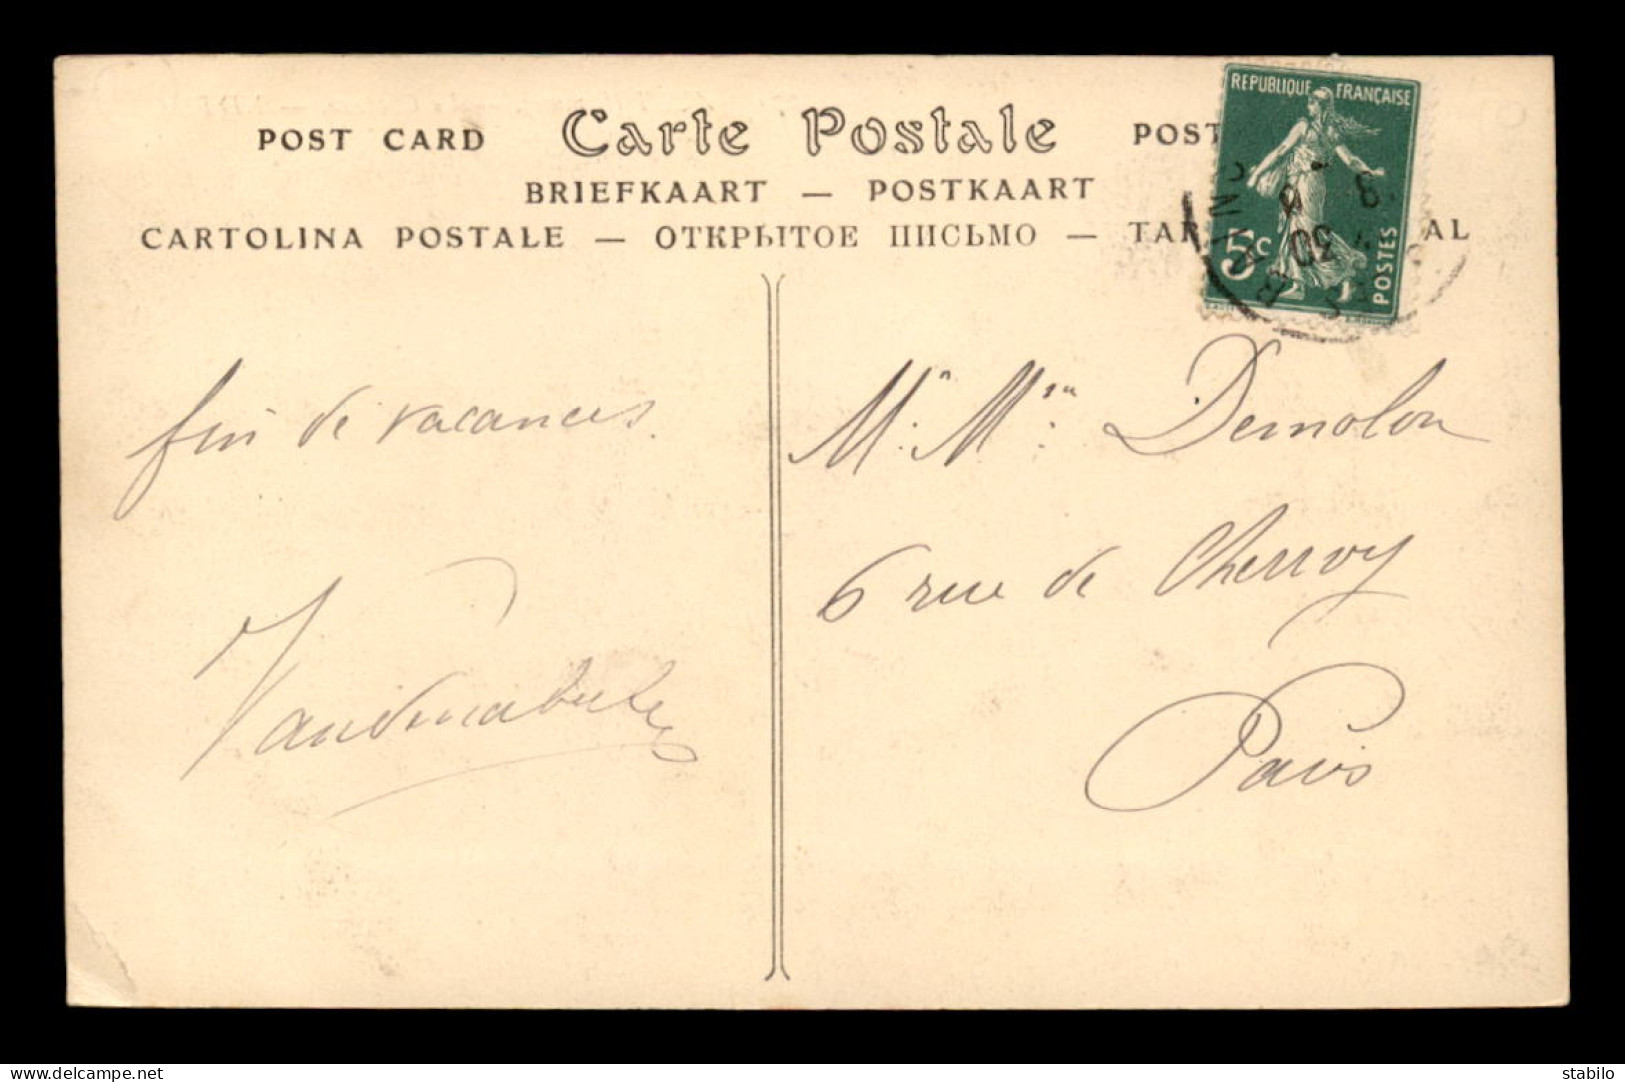 POST CARD Carte Postale POST
BRIEFKAART — POSTKAART
CARTOLINA POSTALE — ОТКРЫТОЕ ПИСЬМО — TAR AL
REPUBLIQUE FRANÇAISE
5c
POSTES
fin de vacances.
Mr. Mme: Demolon
6 rue de Cherroy
Paris
www.delcampe.net
stabilo